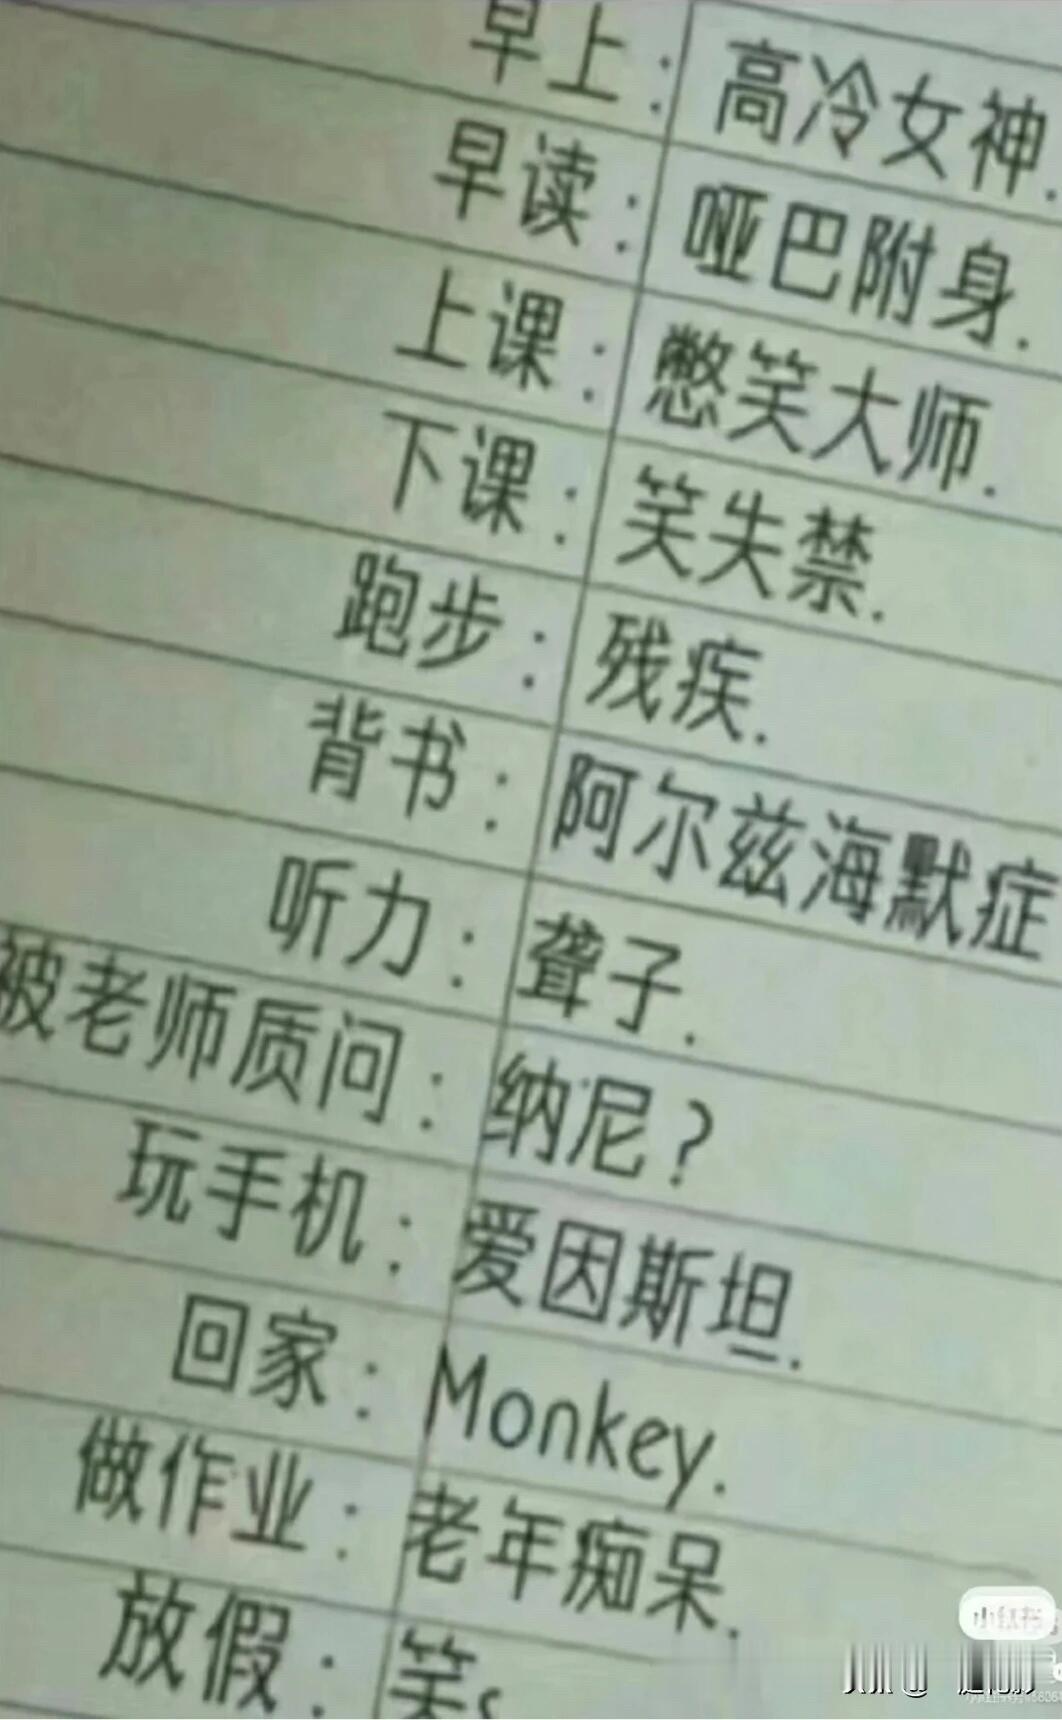 早上：高冷女神.
早读：哑巴附身.
上课：憋笑大师.
下课：笑失禁.
跑步：残疾.
背书：阿尔兹海默症
听力：聋子.
被老师质问：纳尼？
玩手机：爱因斯坦.
回家：Monkey.
做作业：老年痴呆.
放假：笑
小红书